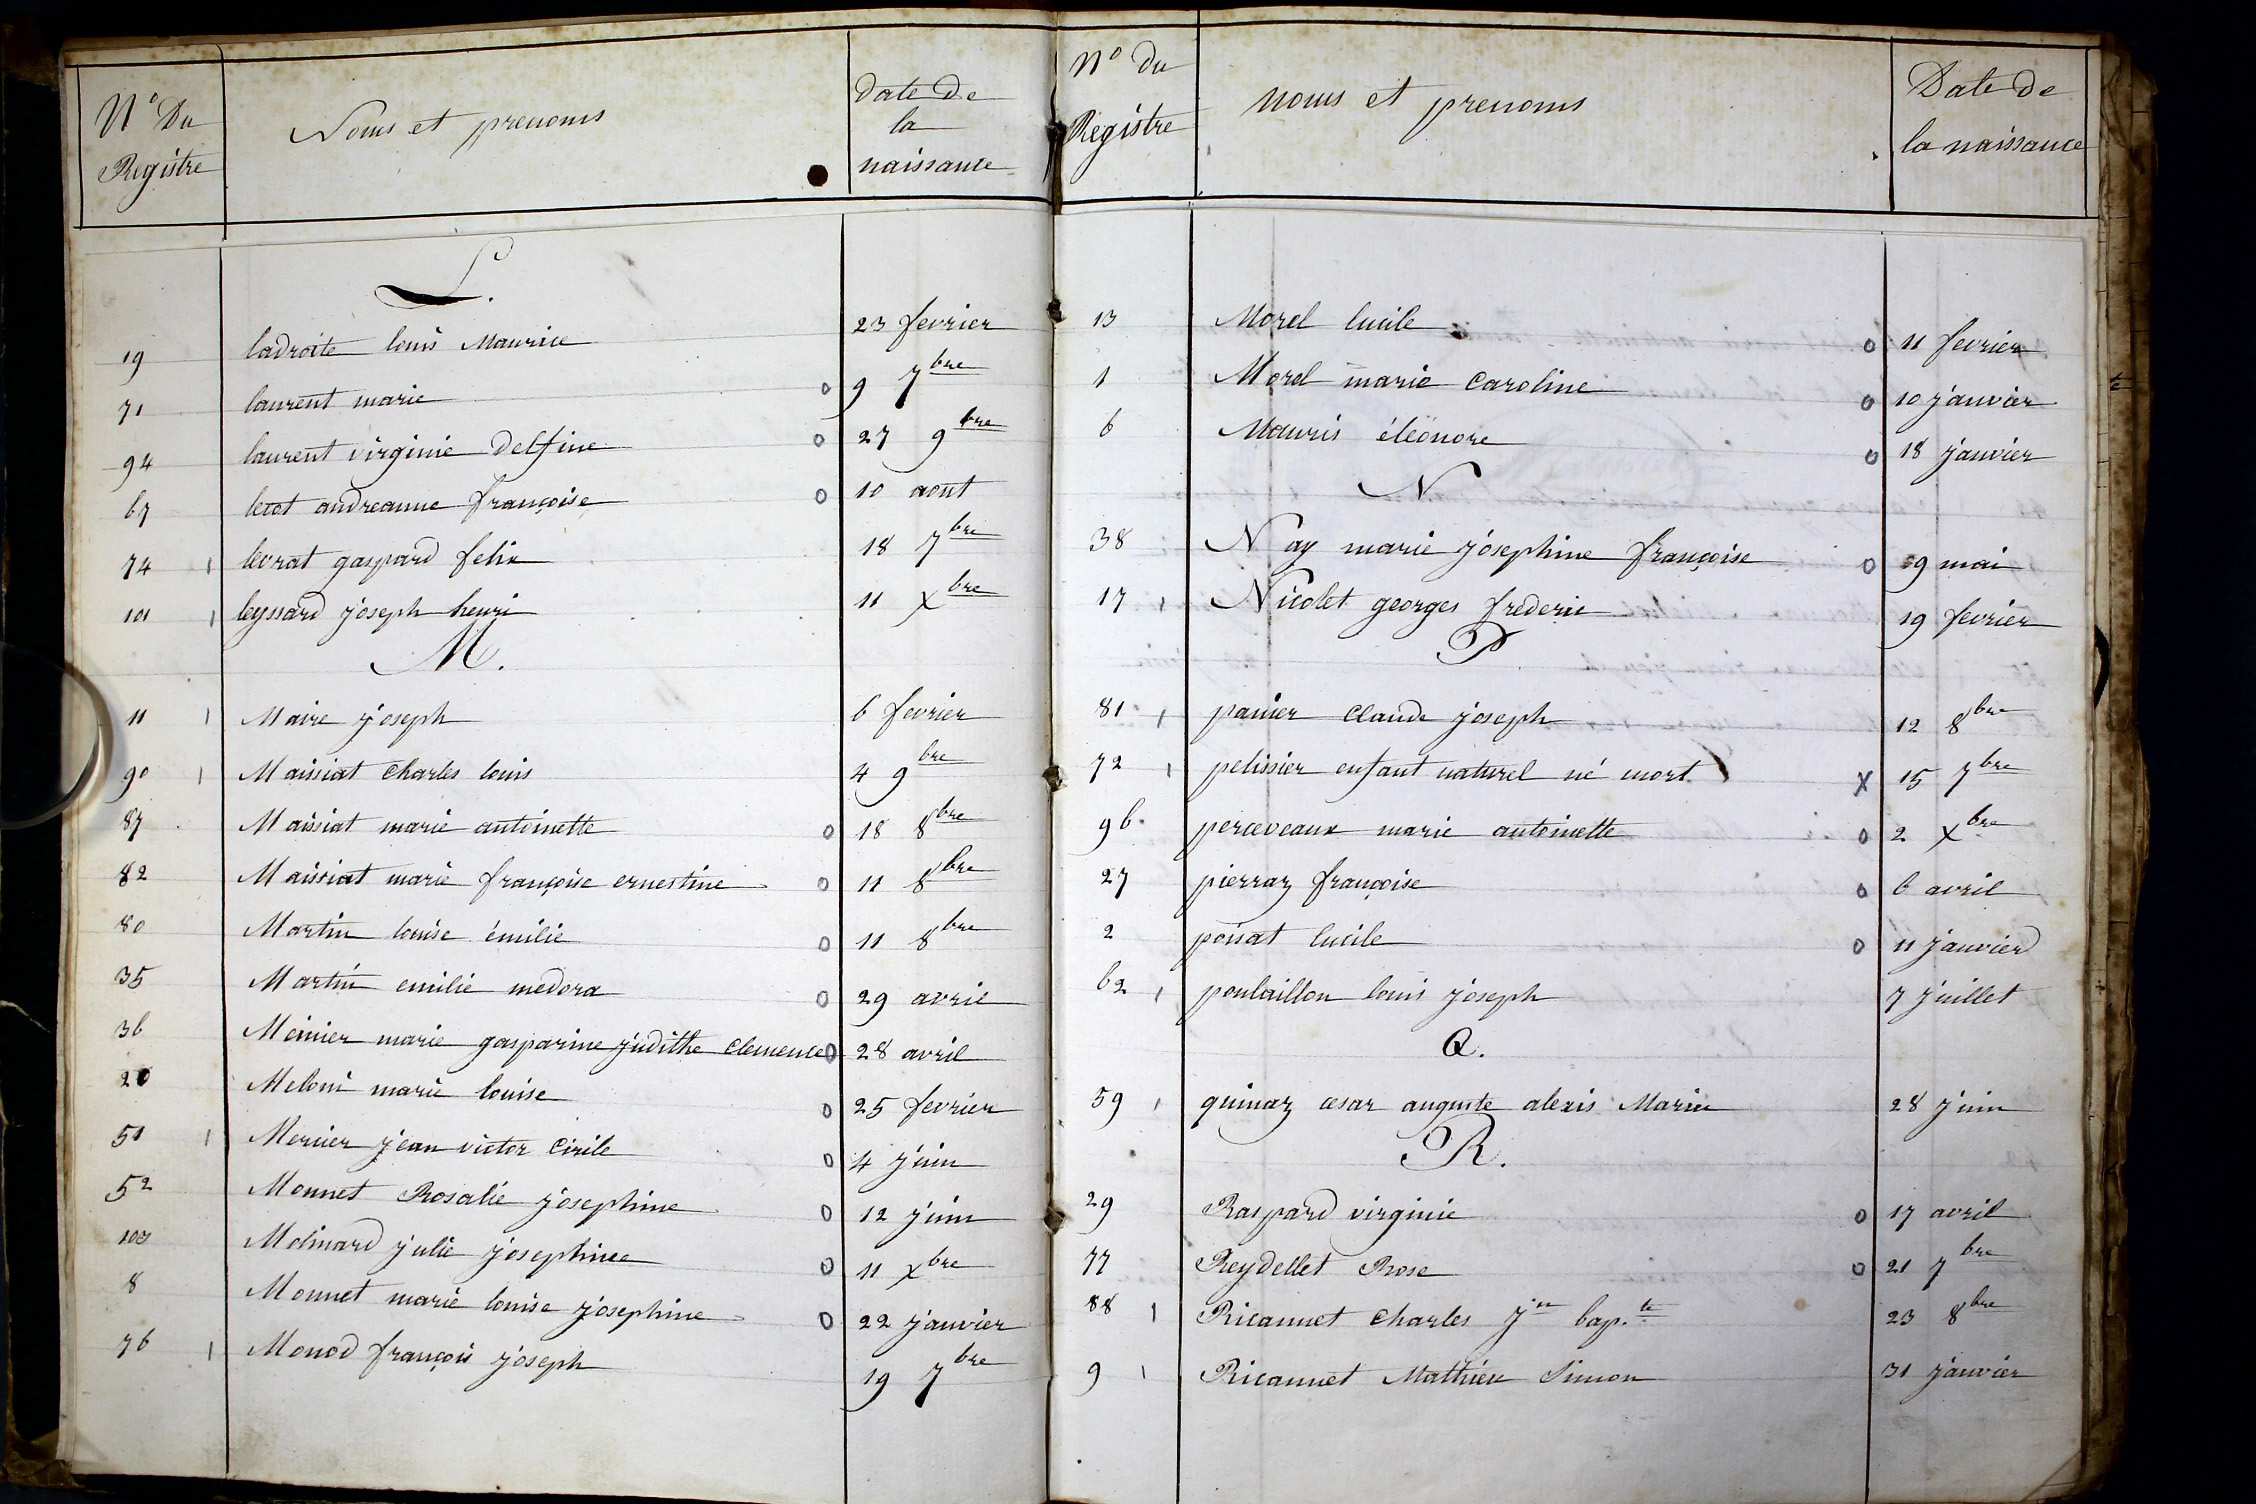 N° Du Registre
Noms et prenoms
date De la naissance
L.
19 ladroite louis Maurice 23 fevrier
71 laurent marie o 9 7bre
94 laurent virginie Delfine o 27 9bre
67 letot andreanne françoise o 10 aout
74 levrat gaspard felix 18 7bre
101 leyssard joseph henri 11 Xbre
M.
11 Maire joseph 6 fevrier
90 Maissiat Charles louis 4 9bre
87 Maissiat marie antoinette o 18 8bre
82 Maissiat marie françoise ernestine o 11 8bre
80 Martin louise émilie o 11 8bre
35 Martin emilie medora o 29 avril
36 Meinier marie gasparine judithe clemence o 28 avril
20 Meloni marie louise o 25 fevrier
51 Mercier jean victor Cirile o 4 juin
52 Monnet Rosalie josephine o 12 juin
103 Molinard julie josephine o 11 Xbre
8 Monnet marie louise josephine o 22 janvier
76 Monod françois joseph 19 7bre
N° du Registre
noms et prenoms
Date de la naissance
13 Morel lucile o 11 fevrier
1 Morel marie Caroline o 10 janvier
6 Mauris éléonore o 18 janvier
N
38 Nay marie josephine françoise o 9 mai
17 Nicolet georges frederic 19 fevrier
P
81 panier Claude joseph 12 8bre
72 pelissier enfant naturel né mort X 15 7bre
96 perceveaux marie antoinette o 2 Xbre
27 pierraz françoise o 6 avril
2 poisat lucile o 11 janvier
62 poulaillon louis joseph 7 juillet
Q.
59 quinaz cesar auguste alexis Marie 28 juin
R.
29 Raspard virginie o 17 avril
77 Reydellet Rose o 21 7bre
88 Ricannet Charles Jn bap.te 23 8bre
9 Ricannet Mathieu Simon 31 janvier